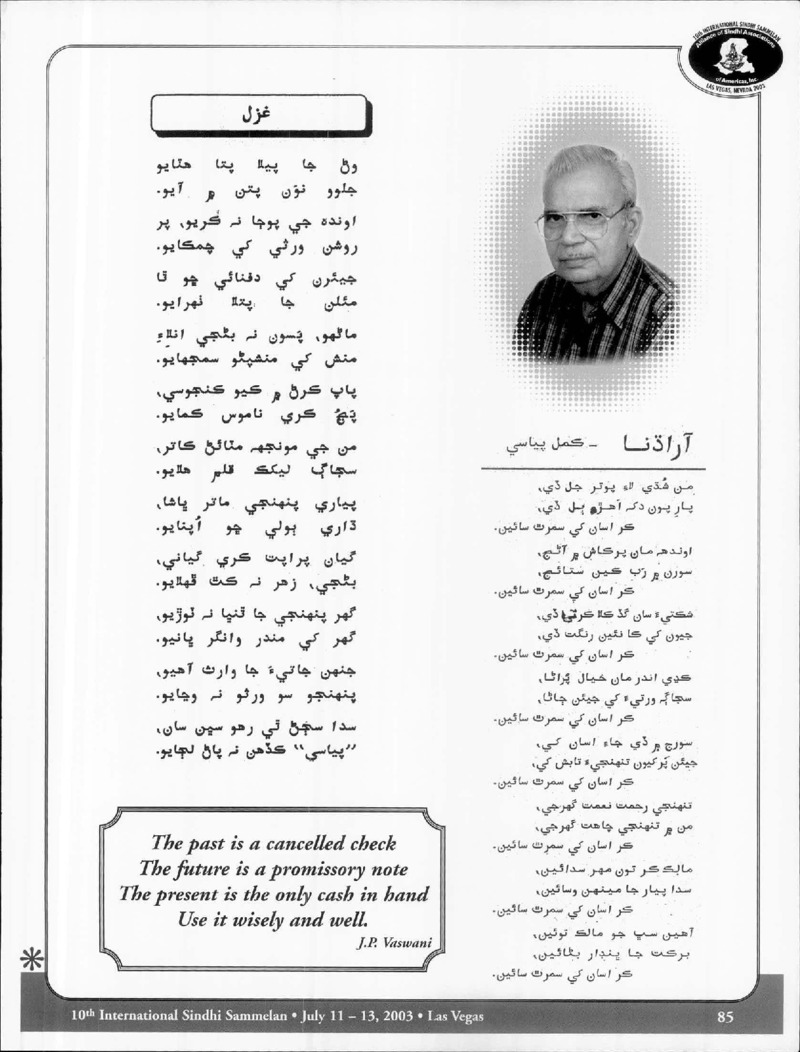 10TH INTERNATIONAL SINDHI SAMMELAN
Alliance of Sindhi Associations
of Americas, Inc.
LAS VEGAS, NEVADA 2003
غزل
وڻ جا پيلا پتا هٽايو
جلوو نون پتن ۾ آيو.
اونده جي پوڄا نہ ڪريو، پر
روشن ورثي کي چمڪايو.
جيئرن کي دفنائي ڇو ٿا
مئلن جا پتلا ٺهرايو.
ماڻهو، پسون نہ بڻجي انلاءِ
منش کي منشپڻو سمجهايو.
پاپ ڪرڻ ۾ ڪيو ڪنجوسي،
پڃ ڪري ناموس ڪمايو.
من جي مونجهہ مٽائڻ ڪاتر،
سڄاڳ ليکڪ قلم هلايو.
پياري پنهنجي ماتر ڀاشا،
ڌاري ٻولي ڇو اُپنايو.
گيان پراپت ڪري گياني،
بڻجي، زهر نہ ڪٿ ڦهلايو.
گهر پنهنجي جا ٿنڀا نہ ٽوڙيو،
گهر کي مندر وانگر ڀانيو.
جنهن جاتيءَ جا وارث آهيو،
پنهنجو سو ورثو نہ وڃايو.
سدا سڄڻ ٿي رهو سڀن سان،
”پياسي“ ڪڏهن نہ پاڻ لڄايو.
آراڌنا – ڪمل پياسي
من شُڌي لاءِ پوتر جل ڏي،
پار پون دکہ اهڙو ٻل ڏي،
ڪر اسان کي سمرٿ سائين.
اوندهہ مان پرڪاش ۾ آڻج،
سورن ۾ رَب ڪين ستائج،
ڪر اسان کي سمرٿ سائين.
شڪتيءَ سان گڏ ڪلا ڪرتي ڏي،
جيون کي ڪا نئين رنگت ڏي،
ڪر اسان کي سمرٿ سائين.
ڪڍي اندر مان خيال پُراڻا،
سڄاڳ ورتيءَ کي جيئن ڄاڻا،
ڪر اسان کي سمرٿ سائين.
سورج ۾ ڏي جاءِ اسان کي،
جيئن پَرکيون تنهنجيءَ تابش کي،
ڪر اسان کي سمرٿ سائين.
تنهنجي رحمت نعمت گهرجي،
من ۾ تنهنجي چاهت گهرجي،
ڪر اسان کي سمرٿ سائين.
مالڪ ڪر تون مهر سدائين،
سدا پيار جا مينهن وسائين،
ڪر اسان کي سمرٿ سائين.
آهين سڀ جو مالڪ توئين،
برڪت جا ڀنڊار بڻائين،
ڪر اسان کي سمرٿ سائين.
The past is a cancelled check
The future is a promissory note
The present is the only cash in hand
Use it wisely and well.
J.P. Vaswani
10th International Sindhi Sammelan • July 11 – 13, 2003 • Las Vegas
85